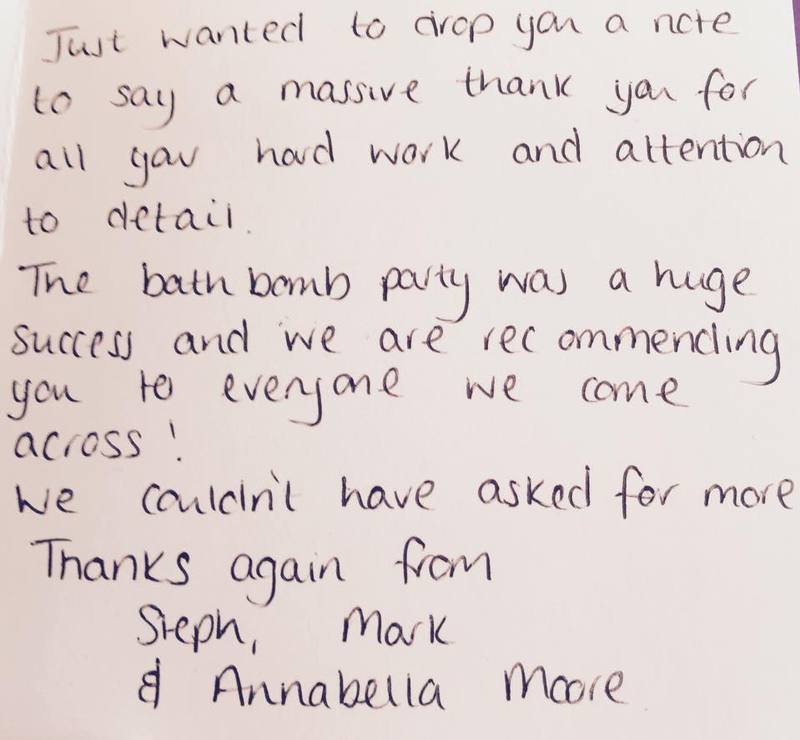 Just wanted to drop you a note
to say a massive thank you for
all your hard work and attention
to detail.
The bath bomb party was a huge
success and we are recommending
you to everyone we come
across!
We couldn't have asked for more
Thanks again from
Steph, Mark
& Annabella Moore